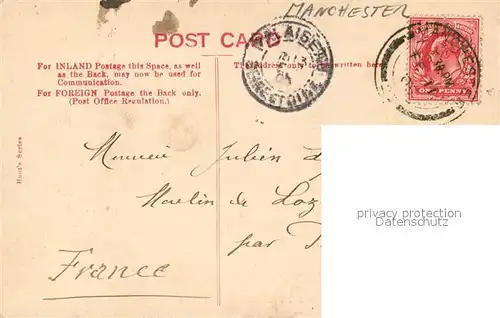 MANCHESTER
POST CARD
For INLAND Postage this Space, as well
as the Back, may now be used for
Communication.
For FOREIGN Postage the Back only.
(Post Office Regulation.)
The Address only to be written here.
ONE PENNY
Hunt's Series
Monsieur Julien
Moulin de Loz
par
France
privacy protection
www.ansichtskarten-center.de